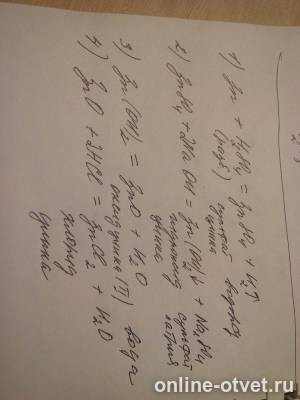 1) Zn + H2SO4 = ZnSO4 + H2↑
(разб) сульфат водород
цинка
2) ZnSO4 + 2NaOH = Zn(OH)2↓ + Na2SO4
гидроксид сульфат
цинка натрия
3) Zn(OH)2 = ZnO + H2O
оксид цинка (II) вода
4) ZnO + 2HCl = ZnCl2 + H2O
хлорид
цинка
online-otvet.ru